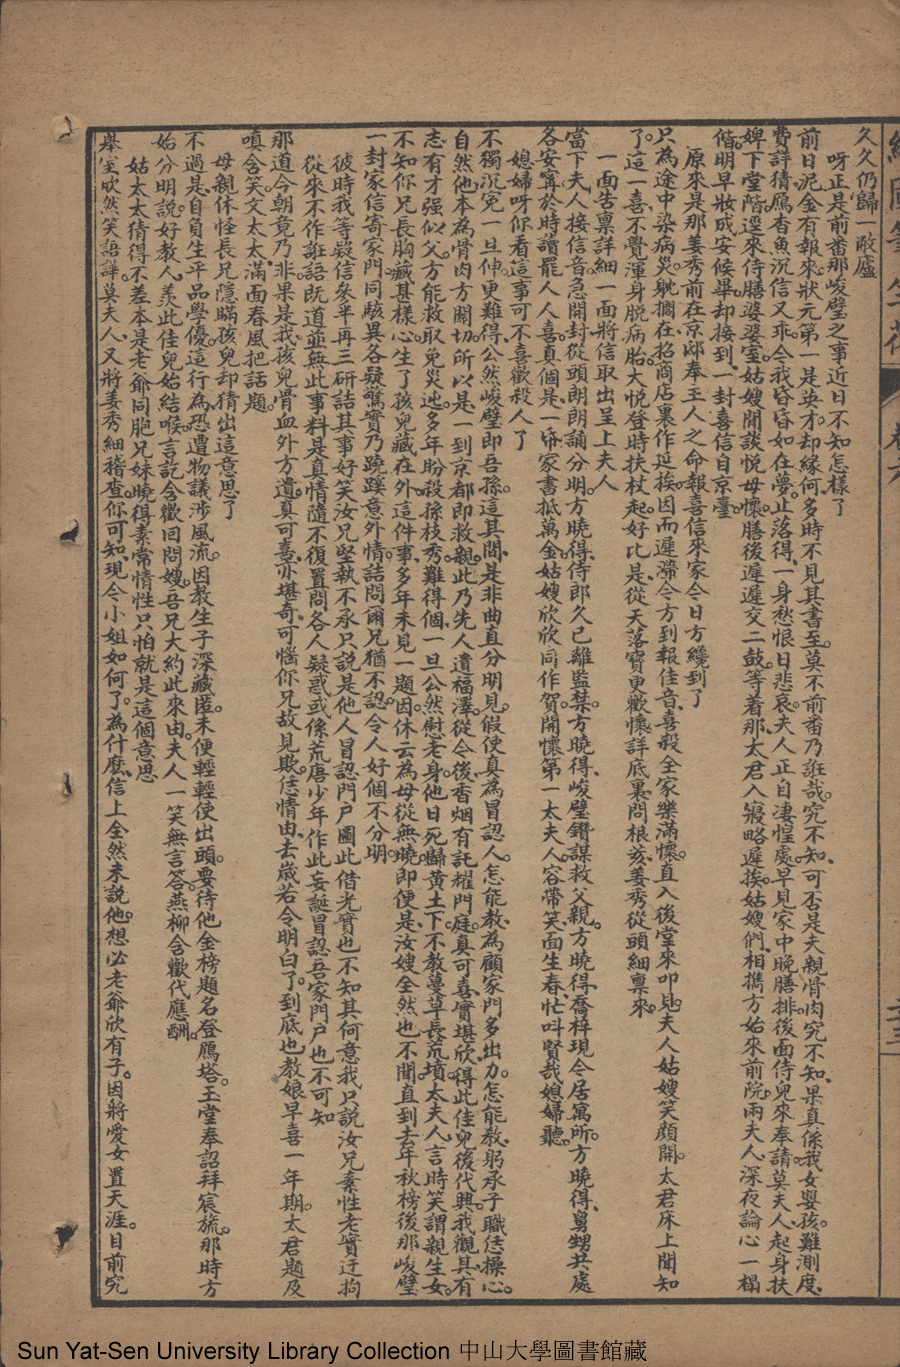 繪圖筆生花
卷六
久久仍歸一敝廬
呀正是前番那峻璧之事近日不知怎樣了
前日泥金有報來狀元第一是英才却緣何多時不見其書至莫不前番乃誑哉究不知可否是夫親骨肉究不知果真係我女嬰孩難測度
費詳猜鴈杳魚沉信又乖令我昏昏如在夢止落得一身愁恨日悲哀夫人正自淒惶處早見家中晚膳排後面侍兒來奉請莫夫人起身扶
婢下堂階逕來侍膳婆婆室姑嫂閒談悅母懷膳後遲遲交二鼓等着那太君入寢略遲挨姑嫂們相擕方始來前院兩夫人深夜論心一榻
偕明早妝成安候畢却接到一封喜信自京臺
原來是那姜秀前在京邸奉主人之命報喜信來家今日方纔到了
只為途中染病災躭擱在招商店裏作延挨因而遲滯今方到報佳音喜殺全家樂滿懷直入後堂來叩見夫人姑嫂笑顏開太君床上聞知
了這一喜不覺渾身脱病胎大悅登時扶杖起好比是從天落寶更歡懷詳底裏問根荄姜秀從頭細稟來
一面告稟詳細一面將信取出呈上夫人
當下夫人接信音急開封從頭朗朗誦分明方曉得侍郎久已離監禁方曉得峻璧鑽謀救父親方曉得喬梓現今居寓所方曉得舅甥共處
各安寧於時讀罷人人喜真個是一帋家書抵萬金姑嫂欣欣同作賀開懷第一太夫人容帶笑面生春忙呌賢哉媳婦聽
媳婦呀你看這事可不喜歡殺人了
不獨沉寃一旦伸更難得公然峻璧即吾孫這其間是非曲直分明見假使真為冒認人怎能教為顧家門多出力怎能教躬承子職恁操心
自然他本為骨肉方關切所以是一到京都即救親此乃先人遺福澤從今後香烟有託耀門庭真可喜實堪欣得此佳兒後代興我觀具有
志有才强似父方能救取免災迍多年盼殺孫枝秀難得個一旦公然慰老身他日死歸黄土下不教蔓草長荒墳太夫人言時笑謂親生女
不知你兄長胸藏甚樣心生了孩兒藏在外這件事多年未見一題因休云為母從無曉即便是汝嫂全然也不聞直到去年秋榜後那峻璧
一封家信寄家門同駭異各疑驚實乃蹺蹊意外情詰問爾兄猶不認令人好個不分明
彼時我等疑信參半再三研詰其事好笑汝兄堅執不承只說是他人冒認門户圖此借光實也不知其何意我只説汝兄素性老實迂拘
從來不作誑語既道並無此事料是真情隨不復置問各人疑惑或係荒唐少年作此妄誕冒認吾家門户也不可知
那道今朝竟乃非果是我孩兒骨血外方遺真可喜亦堪奇可惱你兄故見欺恁情由去歲若令明白了到底也教娘早喜一年期太君題及
嗔含笑文太太滿面春風把話題
母親休怪長兄隱瞞孩兒却猜出這意思了
不過是自負生平品學優這行為恐遭物議涉風流因教生子深藏匿未便輕輕使出頭要待他金榜題名登鴈塔玉堂奉詔拜宸旒那時方
始分明説好教人羨此佳兒始結喉言説含歡回問嫂吾兄大約此來由夫人一笑無言答燕柳含歡代應酬
姑太太猜得不差本是老爺同胞兄妹曉得素常情性只怕就是這個意思
舉室欣然笑語譁莫夫人又將姜秀細稽查你可知現今小姐如何了為什麽信上全然未説他想必老爺欣有子因將愛女置天涯目前究
Sun Yat-Sen University Library Collection 中山大學圖書館藏